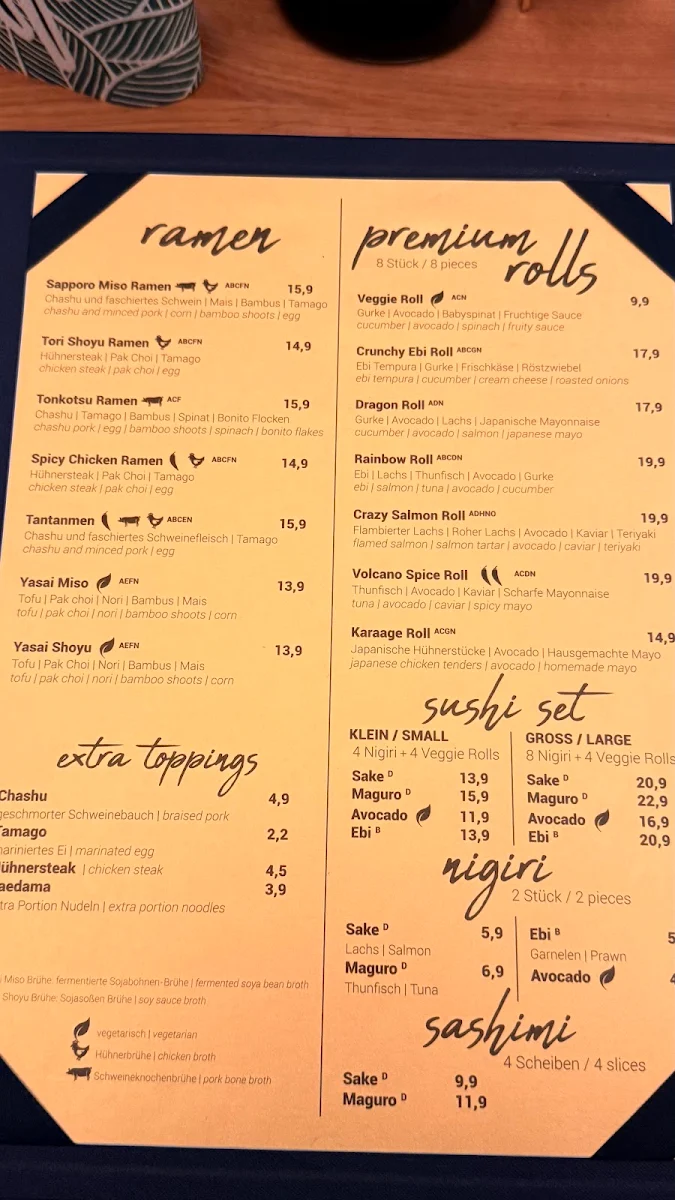 ramen
Sapporo Miso Ramen ABCFN 15,9
Chashu und faschiertes Schwein | Mais | Bambus | Tamago
chashu and minced pork | corn | bamboo shoots | egg
Tori Shoyu Ramen ABCFN 14,9
Hühnersteak | Pak Choi | Tamago
chicken steak | pak choi | egg
Tonkotsu Ramen ACF 15,9
Chashu | Tamago | Bambus | Spinat | Bonito Flocken
chashu pork | egg | bamboo shoots | spinach | bonito flakes
Spicy Chicken Ramen ABCFN 14,9
Hühnersteak | Pak Choi | Tamago
chicken steak | pak choi | egg
Tantanmen ABCEN 15,9
Chashu und faschiertes Schweinefleisch | Tamago
chashu and minced pork | egg
Yasai Miso AEFN 13,9
Tofu | Pak Choi | Nori | Bambus | Mais
tofu | pak choi | nori | bamboo shoots | corn
Yasai Shoyu AEFN 13,9
Tofu | Pak Choi | Nori | Bambus | Mais
tofu | pak choi | nori | bamboo shoots | corn
extra toppings
Chashu 4,9
geschmorter Schweinebauch | braised pork
Tamago 2,2
mariniertes Ei | marinated egg
ühnersteak | chicken steak 4,5
aedama 3,9
tra Portion Nudeln | extra portion noodles
Miso Brühe: fermentierte Sojabohnen-Brühe | fermented soya bean broth
Shoyu Brühe: Sojasoßen Brühe | soy sauce broth
vegetarisch | vegetarian
Hühnerbrühe | chicken broth
Schweineknochenbrühe | pork bone broth
premium rolls
8 Stück / 8 pieces
Veggie Roll ACN 9,9
Gurke | Avocado | Babyspinat | Fruchtige Sauce
cucumber | avocado | spinach | fruity sauce
Crunchy Ebi Roll ABCGN 17,9
Ebi Tempura | Gurke | Frischkäse | Röstzwiebel
ebi tempura | cucumber | cream cheese | roasted onions
Dragon Roll ADN 17,9
Gurke | Avocado | Lachs | Japanische Mayonnaise
cucumber | avocado | salmon | japanese mayo
Rainbow Roll ABCDN 19,9
Ebi | Lachs | Thunfisch | Avocado | Gurke
ebi | salmon | tuna | avocado | cucumber
Crazy Salmon Roll ADHNO 19,9
Flambierter Lachs | Roher Lachs | Avocado | Kaviar | Teriyaki
flamed salmon | salmon tartar | avocado | caviar | teriyaki
Volcano Spice Roll ACDN 19,9
Thunfisch | Avocado | Kaviar | Scharfe Mayonnaise
tuna | avocado | caviar | spicy mayo
Karaage Roll ACGN 14,9
Japanische Hühnerstücke | Avocado | Hausgemachte Mayo
japanese chicken tenders | avocado | homemade mayo
sushi set
KLEIN / SMALL
4 Nigiri + 4 Veggie Rolls
Sake D 13,9
Maguro D 15,9
Avocado 11,9
Ebi B 13,9
GROSS / LARGE
8 Nigiri + 4 Veggie Rolls
Sake D 20,9
Maguro D 22,9
Avocado 16,9
Ebi B 20,9
nigiri
2 Stück / 2 pieces
Sake D 5,9
Lachs | Salmon
Maguro D 6,9
Thunfisch | Tuna
Ebi B 5
Garnelen | Prawn
Avocado 4
sashimi
4 Scheiben / 4 slices
Sake D 9,9
Maguro D 11,9